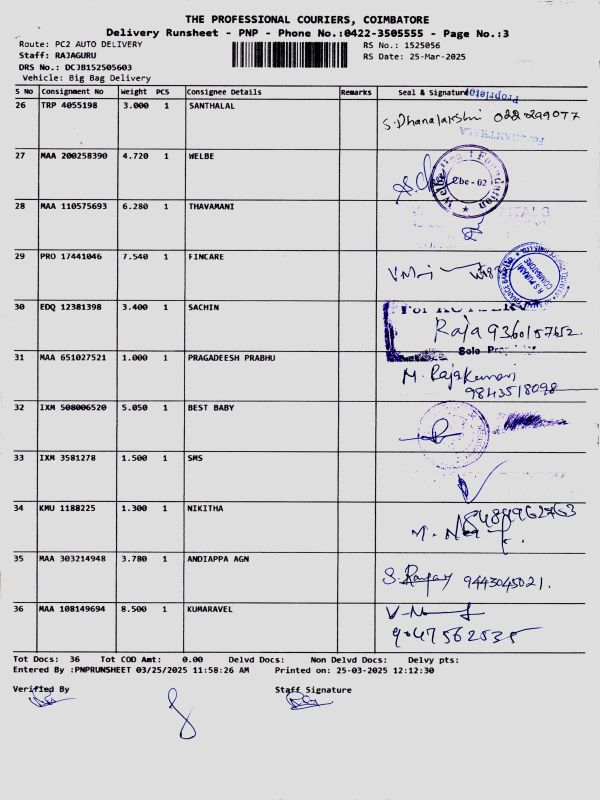 THE PROFESSIONAL COURIERS, COIMBATORE
Delivery Runsheet - PNP - Phone No.:0422-3505555 - Page No.:3
Route: PC2 AUTO DELIVERY RS No.: 1525056
Staff: RAJAGURU RS Date: 25-Mar-2025
DRS No.: DCJB152505603
Vehicle: Big Bag Delivery
S No Consignment No Weight PCS Consignee Details Remarks Seal & Signature
Proprietor
26 TRP 4055198 3.000 1 SANTHALAL
S. Dhanalakshmi
27 MAA 200258390 4.720 1 WELBE
Cbe - 02
28 MAA 110575693 6.280 1 THAVAMANI
29 PRO 17441046 7.540 1 FINCARE
R S PURAM
COIMBATORE
30 EDQ 12381398 3.400 1 SACHIN
Raja 9360157652.
31 MAA 651027521 1.000 1 PRAGADEESH PRABHU
M. Rajakumari
9843518098
32 IXM 508006520 5.050 1 BEST BABY
33 IXM 3581278 1.500 1 SMS
34 KMU 1188225 1.300 1 NIKITHA
35 MAA 303214948 3.780 1 ANDIAPPA AGN
9443045021.
36 MAA 108149694 8.500 1 KUMARAVEL
9047562535
Tot Docs: 36 Tot COD Amt: 0.00 Delvd Docs: Non Delvd Docs: Delvy pts:
Entered By :PNPRUNSHEET 03/25/2025 11:58:26 AM Printed on: 25-03-2025 12:12:30
Verified By Staff Signature